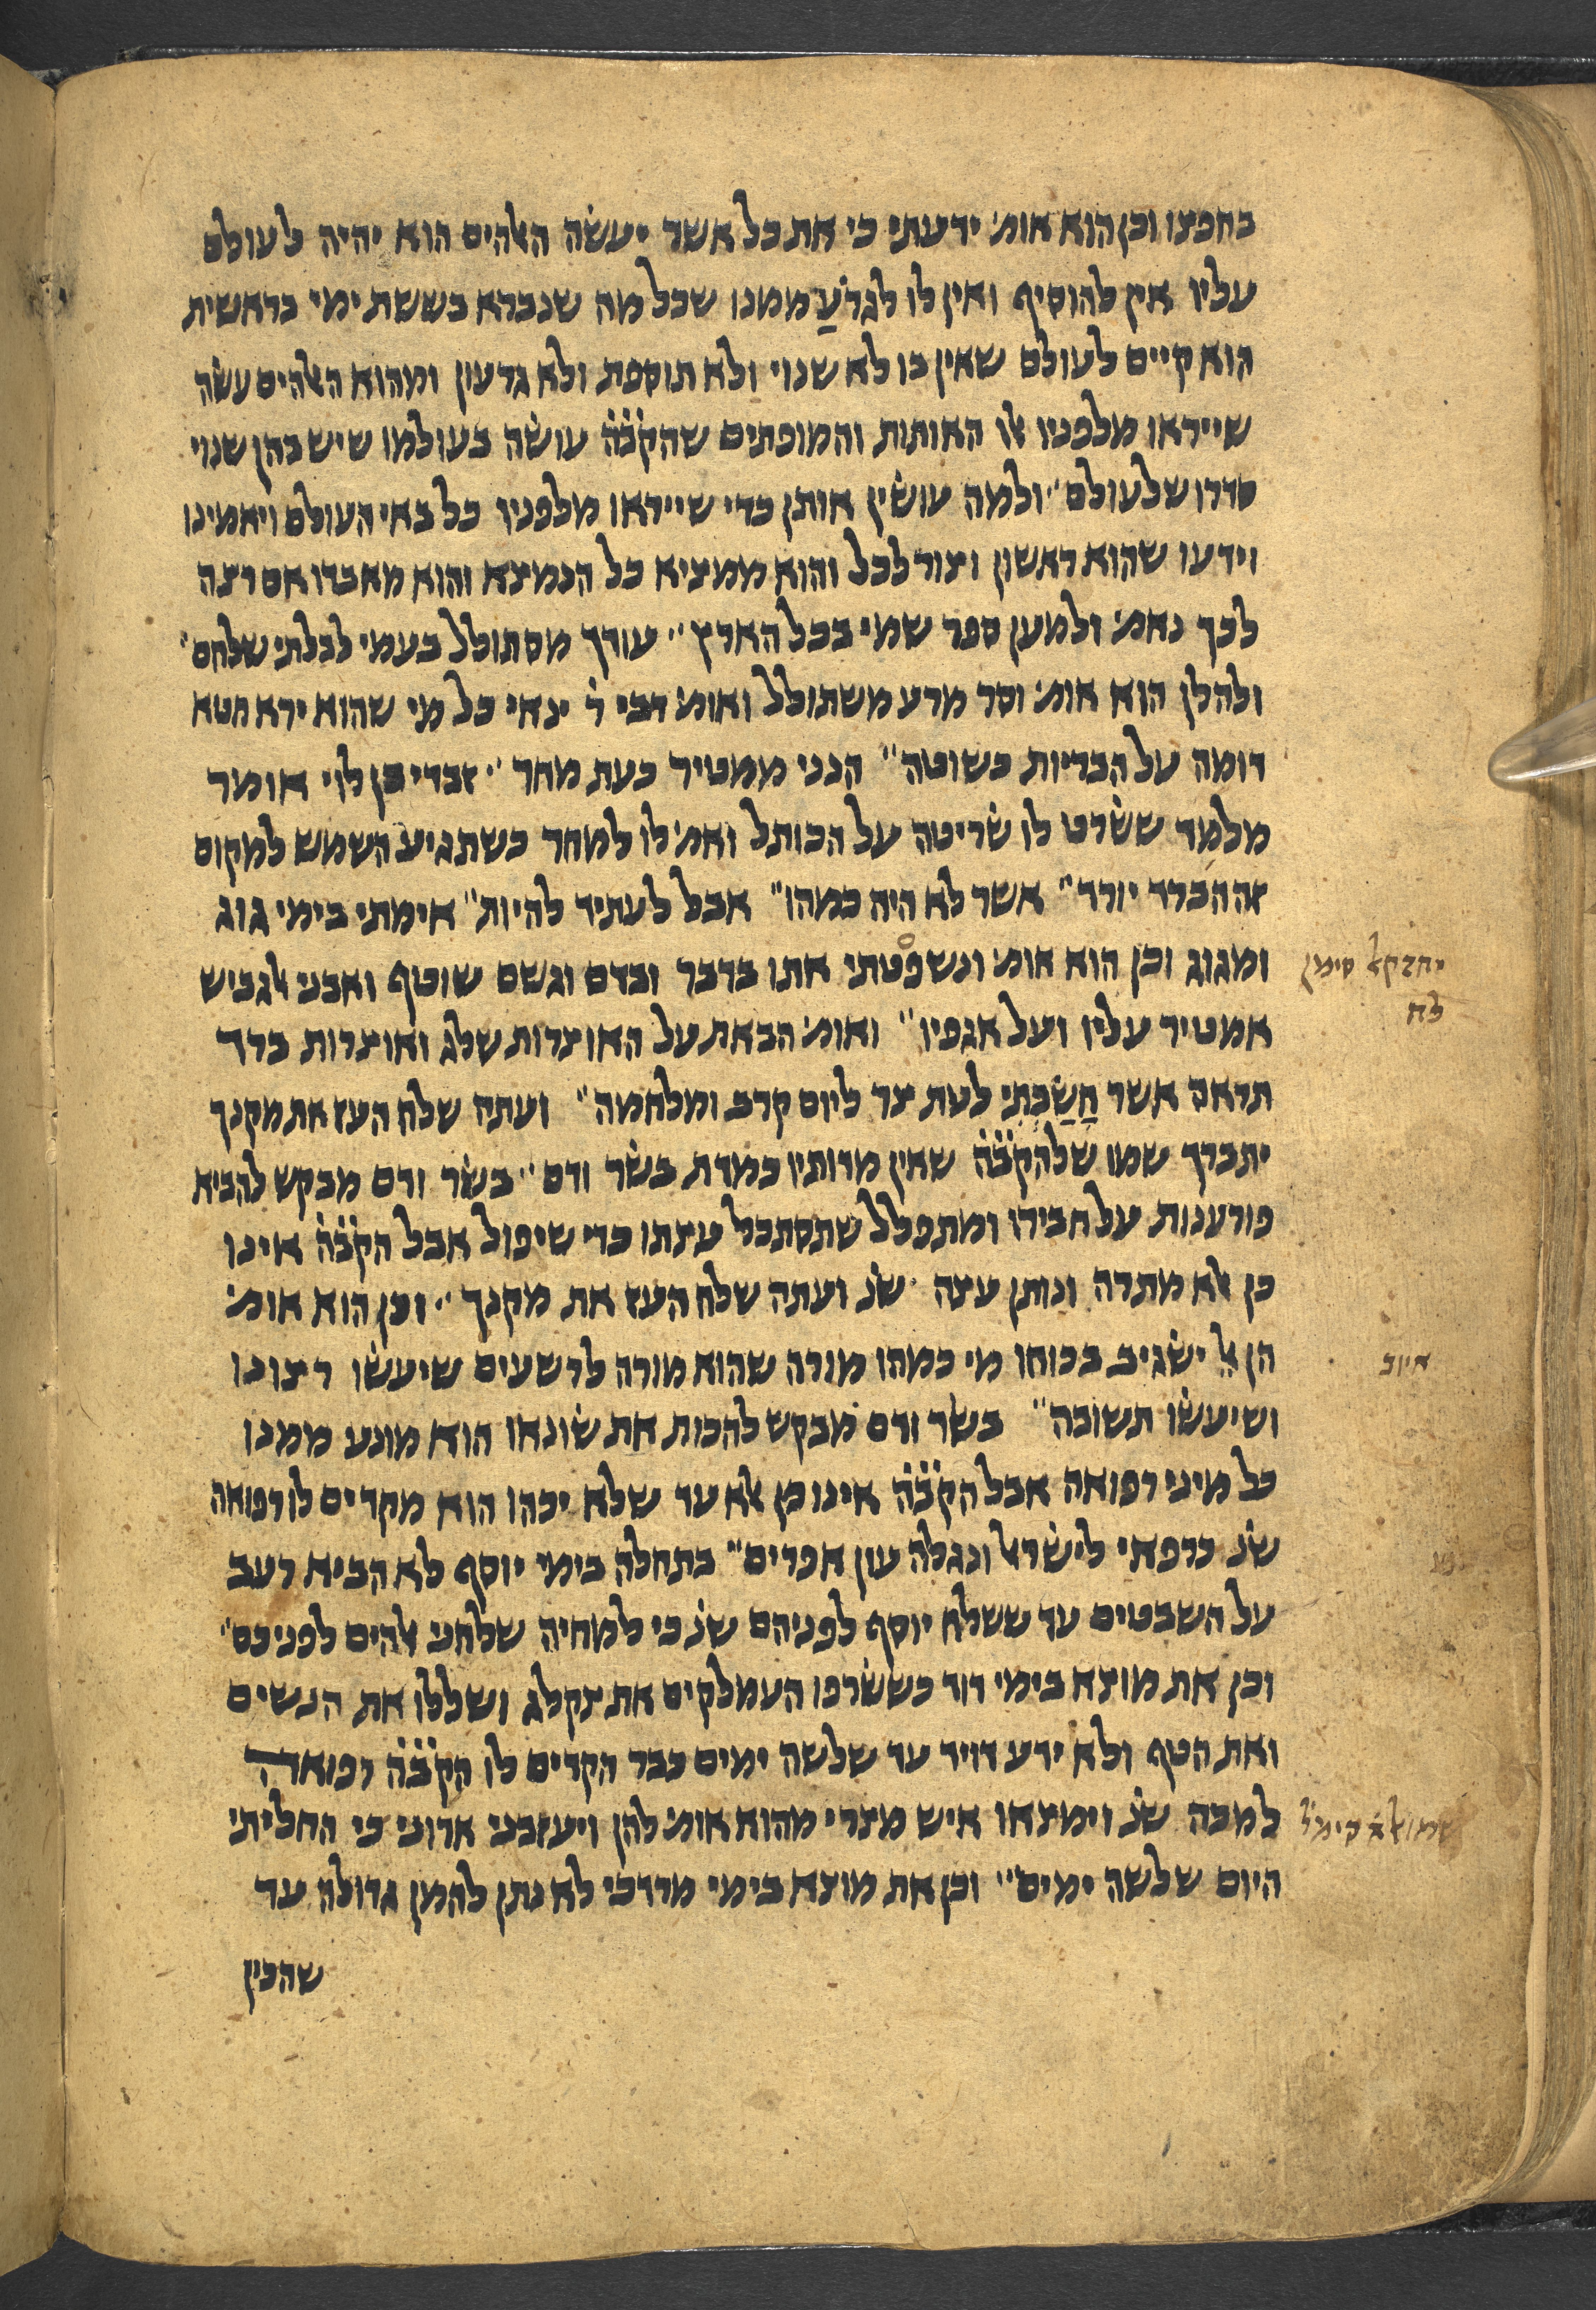 בחפצו וכן הוא אומ׳ ידעתי כי את כל אשר יעשה האלהים הוא יהיה לעולם
עליו אין להוסיף ואין לו לגרֹעַ ממנו שכל מה שנברא בששת ימי בראשית
הוא קיים לעולם שאין בו לא שנוי ולא תוספת ולא גדעון ומהוא האלהים עשה
שייראו מלפניו אלו האותות והמופתים שהק̇ב̇ה̇ עושה בעולמו שיש בהן שנוי
סדרו שלעולם ׳׳ ולמה עושין אותן כדי שייראו מלפניו כל באי העולם ויאמינו
וידעו שהוא ראשון וצור לכל והוא ממציא כל הנמצא והוא מאבדו אם רצה
לכך נאמ׳ ולמען ספר שמי בכל הארץ ׳׳ עודך מסתולל בעמי לבלתי שלחם ׳׳
ולהלן הוא אומ׳ וסר מרע משתולל ואומ׳ דבי ר̇ ינאי כל מי שהוא ירא חטא
דומה על הבריות כשוטה ׳׳ הנני ממטיר כעת מחר ׳׳ זבדי בן לוי אומר
מלמד ששרט לו שריטה על הכותל ואמ׳ לו למחר כשתגיע השמש למקום
זה הברד יורד ׳׳ אשר לא היה כמהו ׳׳ אבל לעתיד להיות ׳׳ אימתי בימי גוג
ומגוג וכן הוא אומ׳ ונשפטתי אתו בדבר ובדם וגשם שוטף ואבני אלגביש
יחזקאל סימן
לח
אמטיר עליו ועל אגפיו ׳׳ ואומ׳ הבאת על האוצרות שלג ואוצרות ברד
תראה אשר חָשַׂכְתִּי לעת צר ליום קרב ומלחמה ׳׳ ועתה שלח העז את מקנך
יתברך שמו שלהק̇ב̇ה̇ שאין מדותיו כמדת בשר ודם ׳׳ בשר ודם מבקש להביא
פורענות על חבירו ומתפלל שתסתכל עצתו כדי שיפול אבל הק̇ב̇ה̇ אינו
כן אלא מתרה ונותן עצה ׳ שנ̇ ועתה שלח העז את מקנך ׳׳ וכן הוא אומ׳
הן אל ישגיב בכוחו מי כמהו מורה שהוא מורה לרשעים שיעשו רצונו
איוב
ושיעשו תשובה ׳׳ בשר ודם מבקש להכות את שונאו הוא מונע ממנו
כל מיני רפואה אבל הק̇ב̇ה̇ אינו כן אלא עד שלא יכהו הוא מקדים לו רפואה
שנ̇ כרפאי לישראל ונגלה עון אפרים ׳׳ בתחלה בימי יוסף לא הביא רעב
על השבטים עד ששלח יוסף לפניהם שנ̇ כי למחיה שלחני אלהים לפניכם ׳׳
וכן את מוצא בימי דוד כששרפו העמלקים את צקלג ושללו את הנשים
ואת הטף ולא ידע דויד עד שלשה ימים כבר הקדים לו הק̇ב̇ה̇ רפואה
למכה שנ̇ וימצאו איש מצרי מהוא אומ׳ להן ויעזבני אדוני כי החליתי
שמואל א סימ׳ ל
היום שלשה ימים ׳׳ וכן את מוצא בימי מרדכי לא נתן להמן גדולה עד
שהכין